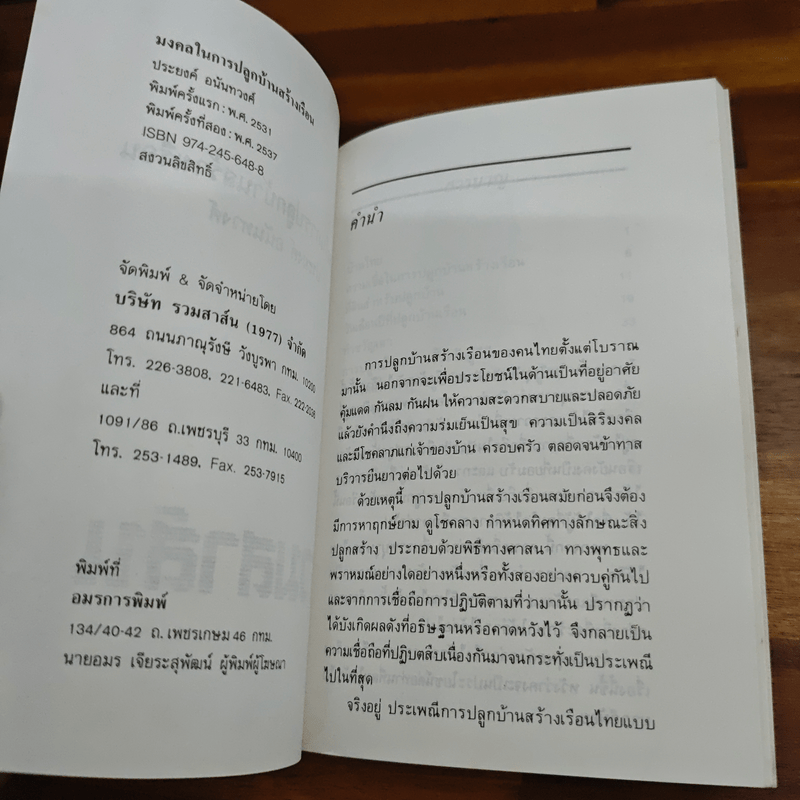 มงคลในการปลูกบ้านสร้างเรือน
ประยงค์ อนันทวงศ์
พิมพ์ครั้งแรก : พ.ศ. 2531
พิมพ์ครั้งที่สอง : พ.ศ. 2537
ISBN 974-245-648-8
สงวนลิขสิทธิ์
จัดพิมพ์ & จัดจำหน่ายโดย
บริษัท รวมสาส์น (1977) จำกัด
864 ถนนภาณุรังษี วังบูรพา กทม. 10200
โทร. 226-3808, 221-6483, Fax. 222-2038
และที่
1091/86 ถ.เพชรบุรี 33 กทม. 10400
โทร. 253-1489, Fax. 253-7915
พิมพ์ที่
อมรการพิมพ์
134/40-42 ถ. เพชรเกษม 46 กทม.
นายอมร เจียระสุพัฒน์ ผู้พิมพ์ผู้โฆษณา
คำนำ
การปลูกบ้านสร้างเรือนของคนไทยตั้งแต่โบราณ
มานั้น นอกจากจะเพื่อประโยชน์ในด้านเป็นที่อยู่อาศัย
คุ้มแดด กันลม กันฝน ให้ความสะดวกสบายและปลอดภัย
แล้วยังคำนึงถึงความร่มเย็นเป็นสุข ความเป็นสิริมงคล
และมีโชคลาภแก่เจ้าของบ้าน ครอบครัว ตลอดจนข้าทาส
บริวารยืนยาวต่อไปด้วย
ด้วยเหตุนี้ การปลูกบ้านสร้างเรือนสมัยก่อนจึงต้อง
มีการหาฤกษ์ยาม ดูโชคลาง กำหนดทิศทางลักษณะสิ่ง
ปลูกสร้าง ประกอบด้วยพิธีทางศาสนา ทางพุทธและ
พราหมณ์อย่างใดอย่างหนึ่งหรือทั้งสองอย่างควบคู่กันไป
และจากการเชื่อถือการปฏิบัติตามที่ว่ามานั้น ปรากฏว่า
ได้บังเกิดผลดังที่อธิษฐานหรือคาดหวังไว้ จึงกลายเป็น
ความเชื่อถือที่ปฏิบัติสืบเนื่องกันมาจนกระทั่งเป็นประเพณี
ไปในที่สุด
จริงอยู่ ประเพณีการปลูกบ้านสร้างเรือนไทยแบบ